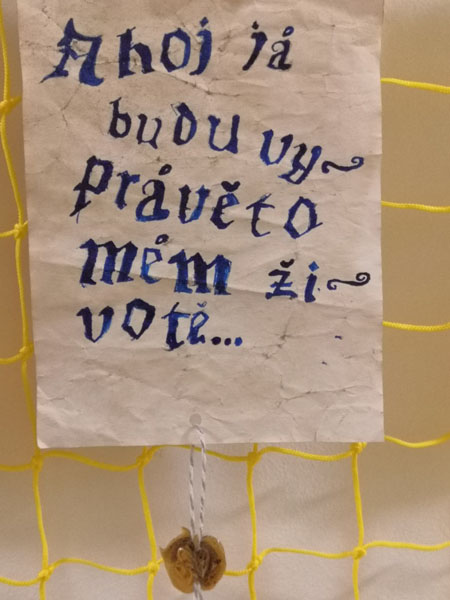 Ahoj já
budu vy~
právěto
mém ži~
votě...